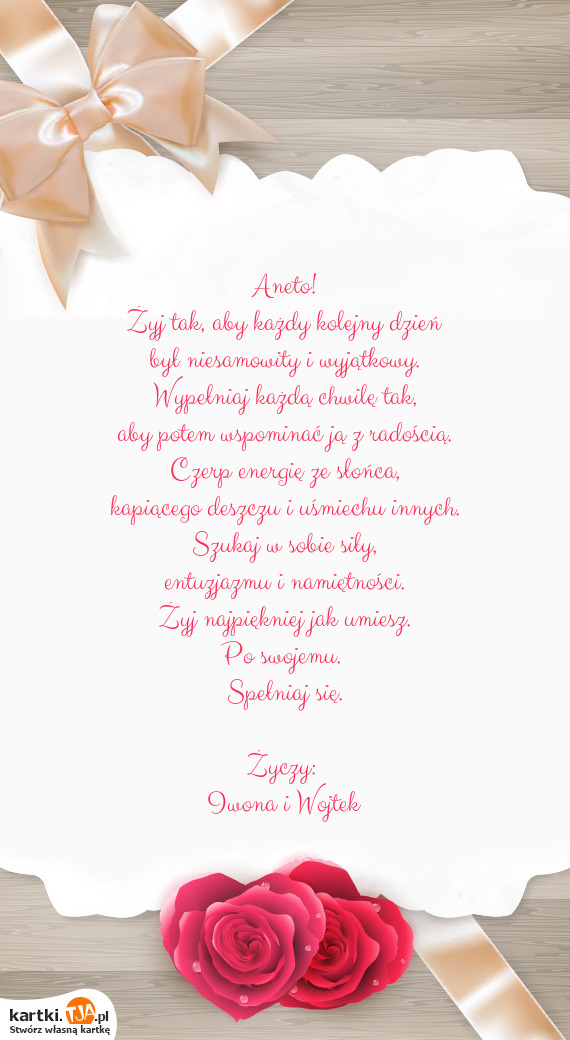 Aneto!
Żyj tak, aby każdy kolejny dzień
był niesamowity i wyjątkowy.
Wypełniaj każdą chwilę tak,
aby potem wspominać ją z radością.
Czerp energię ze słońca,
kapiącego deszczu i uśmiechu innych.
Szukaj w sobie siły,
entuzjazmu i namiętności.
Żyj najpiękniej jak umiesz.
Po swojemu.
Spełniaj się.
Życzy:
Iwona i Wojtek
kartki.TJA.pl
Stwórz własną kartkę